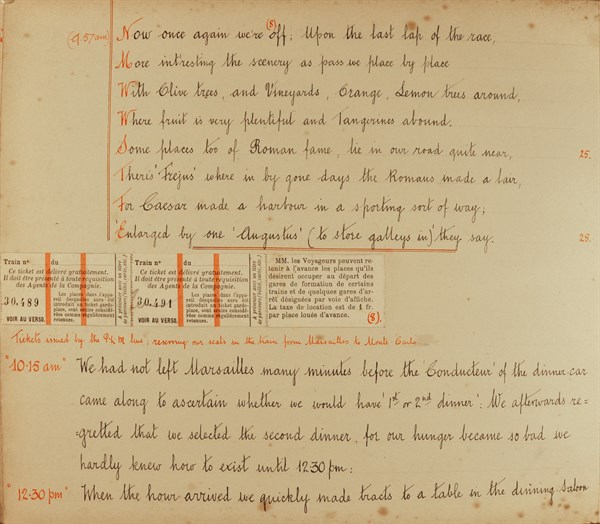 (9.57am) Now once again we're (8) off; Upon the last lap of the race,
More intresting the scenery as pass we place by place
With Olive trees, and Vineyards, Orange, Lemon trees around,
Where fruit is very plentiful and Tangerines abound.
Some places too of Roman fame, lie in our road quite near, 25.
Theris 'Frejus' where in by gone days the Romans made a lair,
For Caesar made a harbour in a sporting sort of way;
Enlarged by one 'Augustus' (to store galleys in) they say. 25.
Train n° du
Ce ticket est délivré gratuitement.
Il doit être présenté à toute réquisition
des Agents de la Compagnie.
30.489
Les places dans l'appareil
introduit au ticket garde-place,
sont considérées
comme régulièrement
retenues.
VOIR AU VERSO.
Train n° du
Ce ticket est délivré gratuitement.
Il doit être présenté à toute réquisition
des Agents de la Compagnie.
30.491
Les places dans l'appareil
introduit au ticket garde-place,
sont considérées
comme régulièrement
retenues.
VOIR AU VERSO.
MM. les Voyageurs peuvent retenir
à l'avance les places qu'ils
désirent occuper au départ des
gares de formation de certains
trains et de quelques gares d'arrêt
désignées par voie d'affiche.
La taxe de location est de 1 fr.
par place louée d'avance.
(8).
Tickets issued by the P L M line; reserving our seats in the train from Marsailles to Monte Carlo
"10.15 am" We had not left Marsailles many minutes before the 'Conducteur' of the dinner car
came along to ascertain whether we would have '1st or 2nd dinner'. We afterwards re=
=gretted that we selected the second dinner, for our hunger became so bad we
hardly knew how to exist until 12.30 pm:
"12-30 pm" When the hour arrived we quickly made tracts to a table in the dinning Saloon